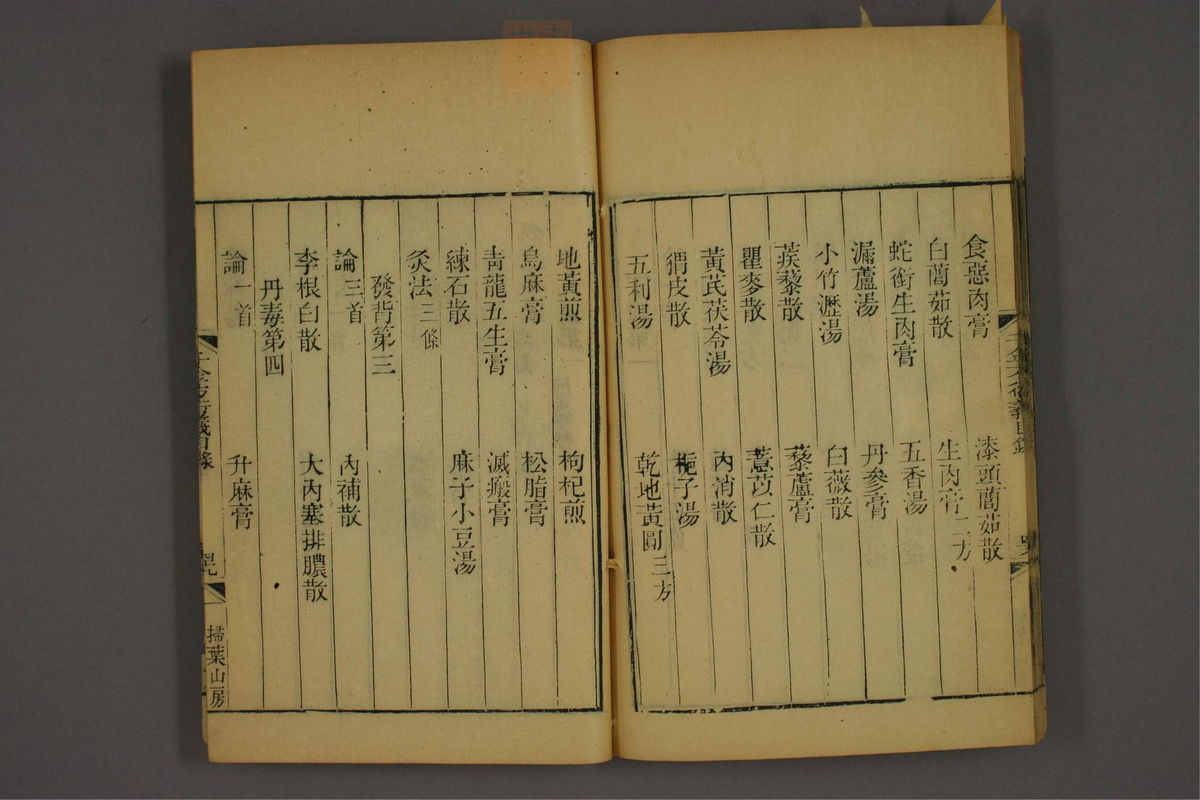 食惡肉膏 漆頭䕡茹散
白䕡茹散 生肉膏二方
蛇銜生肉膏 五香湯
漏蘆湯 丹參膏
小竹瀝湯 白薇散
蒺藜散 藜蘆膏
瞿麥散 薏苡仁散
黃芪茯苓湯 內消散
猬皮散 梔子湯
五利湯 乾地黃圓三方
地黃煎 枸杞煎
烏麻膏 松脂膏
靑龍五生膏 滅瘢膏
練石散 麻子小豆湯
灸法三條
發背第三
論三首 內補散
李根白散 大內塞排膿散
丹毒第四
論一首 升麻膏
千金方衍義目錄
掃葉山房
千金方衍義目錄